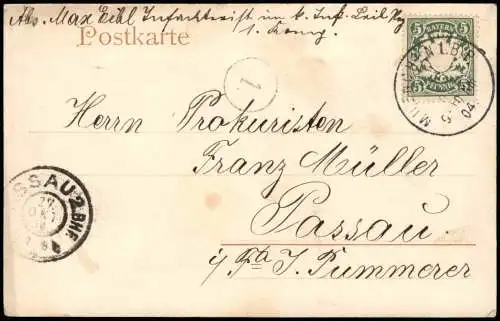 Abs. Max Eichl Infanterist im k. Inf. Leib Rg
1. Komp.
Postkarte
BAYERN
5 5
PFENNIG
1.
Herrn Prokuristen
Franz Müller
Passau
i/Fa J. Pummerer
PASSAU 2 BHF.
27.